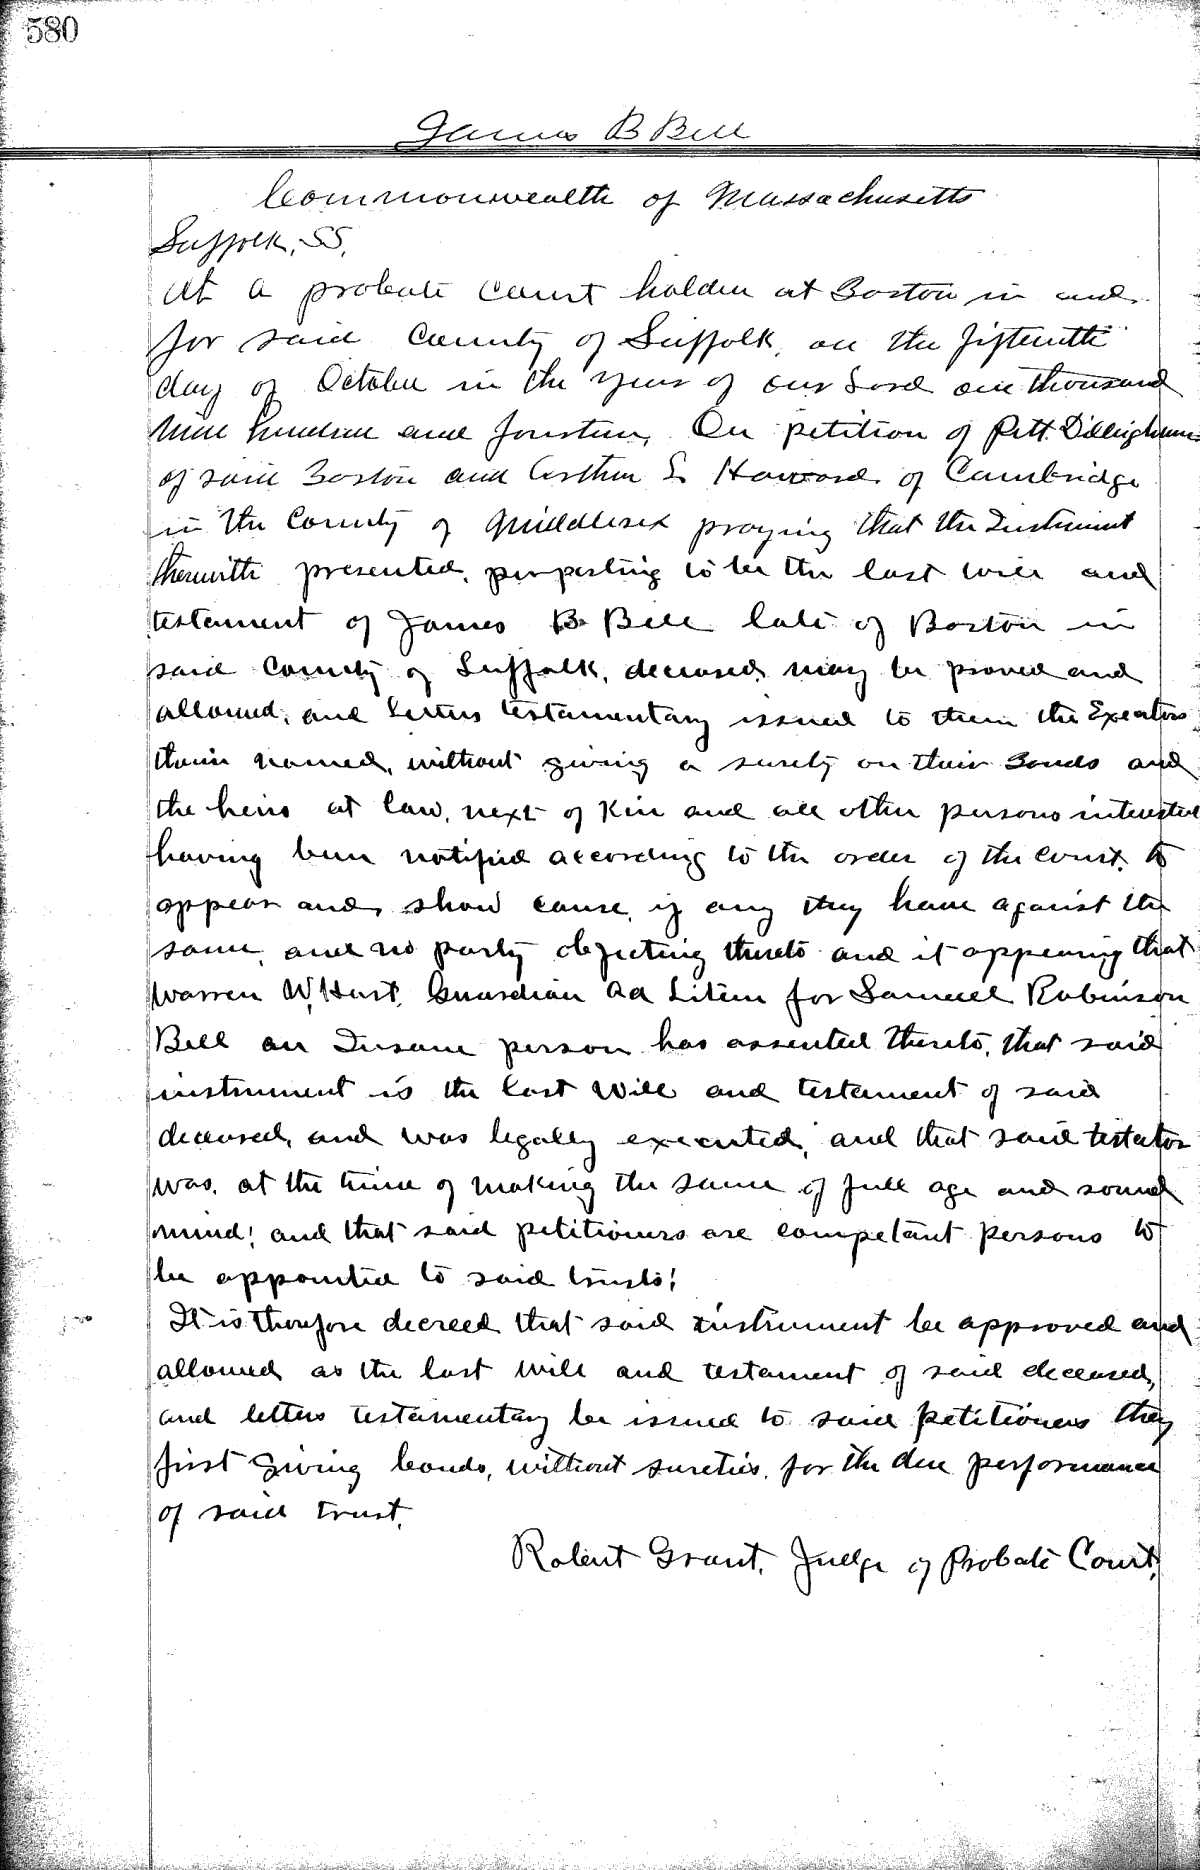 580
James B Bell
Commonwealth of Massachusetts
Suffolk, SS.
At a probate court holden at Boston in and
for said County of Suffolk, on the fifteenth
day of October in the year of our Lord one thousand
nine hundred and fourteen, On petition of Pitt Dillingham
of said Boston and Arthur L Howard of Cambridge
in the County of Middlesex praying that the Instrument
therewith presented, purporting to be the last will and
testament of James B Bell late of Boston in
said County of Suffolk, deceased, may be proved and
allowed, and letters testamentary issued to them the Executors
therin named, without giving a surety on their Bonds and
the heirs at law, next of Kin and all other persons interested
having been notified according to the order of the Court, to
appear and show cause, if any they have against the
same, and no party objecting thereto and it appearing that
Warren W, Hurst, Guardian ad Litem for Samuel Robinson
Bell an Insane person has assented thereto, that said
instrument is the last Will and testament of said
deceased, and was legally executed, and that said testator
was, at the time of making the same of full age and sound
mind; and that said petitioners are competant persons to
be appointed to said trusts;
It is therefore decreed that said instrument be approved and
allowed as the last will and testament of said deceased,
and letters testamentary be issued to said petitioners they
first giving bonds, without sureties, for the due performance
of said trust.
Robert Grant, Judge of Probate Court.